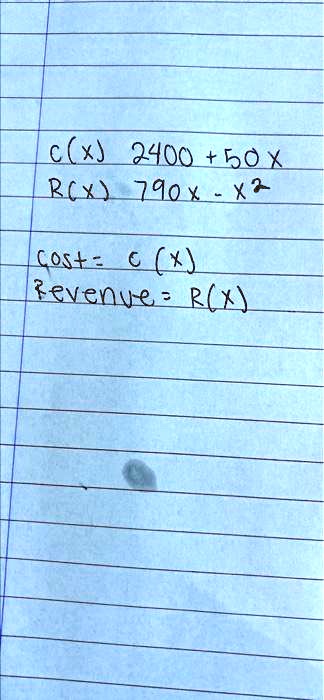 C(x) 2400 + 50x
R(x) 790x - x²
Cost = C(x)
Revenue = R(x)